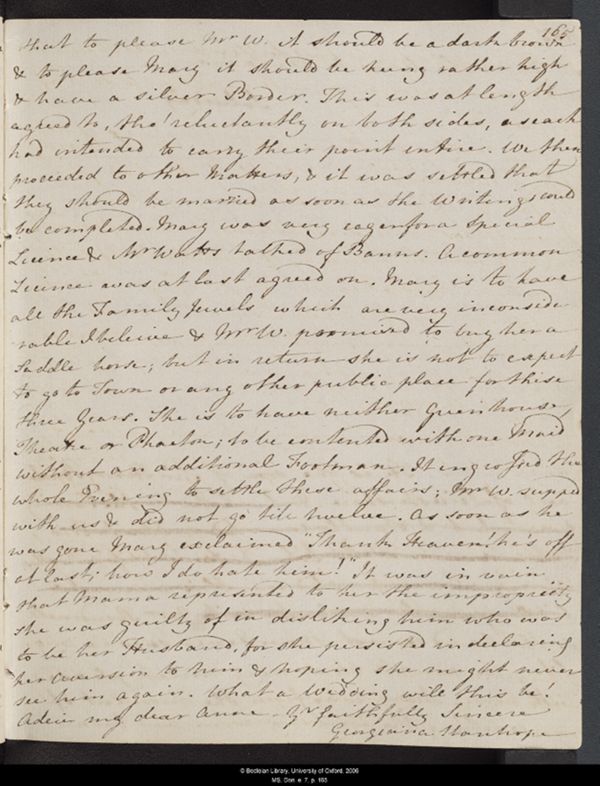 165
that to please Mr W. it should be a dark brown
& to please Mary it should be hung rather high
& have a silver Border. This was at length
agreed to, tho' reluctantly on both sides, as each
had intended to carry their point entire. We then
proceeded to other Matters, & it was settled that
they should be married as soon as the Writings could
be completed. Mary was very eager for a Special
Licence & Mr Watts talked of Banns. A common
Licence was at last agreed on. Mary is to have
all the Family Jewels which are very inconside
rable I beleive & Mr W. promised to buy her a
Saddle horse; but in return she is not to expect
to go to Town or any other public place for these
three Years. She is to have neither Greenhouse,
Theatre or Phaeton; to be contented with one Maid
without an additional Footman. It engrossed the
whole Evening to settle these affairs; Mr W. supped
with us & did not go till twelve. As soon as he
was gone Mary exclaimed "Thank Heaven! he's off
at last; how I do hate him!" It was in vain
that Mama represented to her the impropriety
she was guilty of in disliking him who was
to be her Husband, for she persisted in declaring
her aversion to him & hoping she might never
see him again. What a Wedding will this be!
Adeiu my dear Anne. Yr faithfully Sincere
Georgiana Stanhope
© Bodleian Library, University of Oxford, 2006
MS. Don. e. 7, p. 165